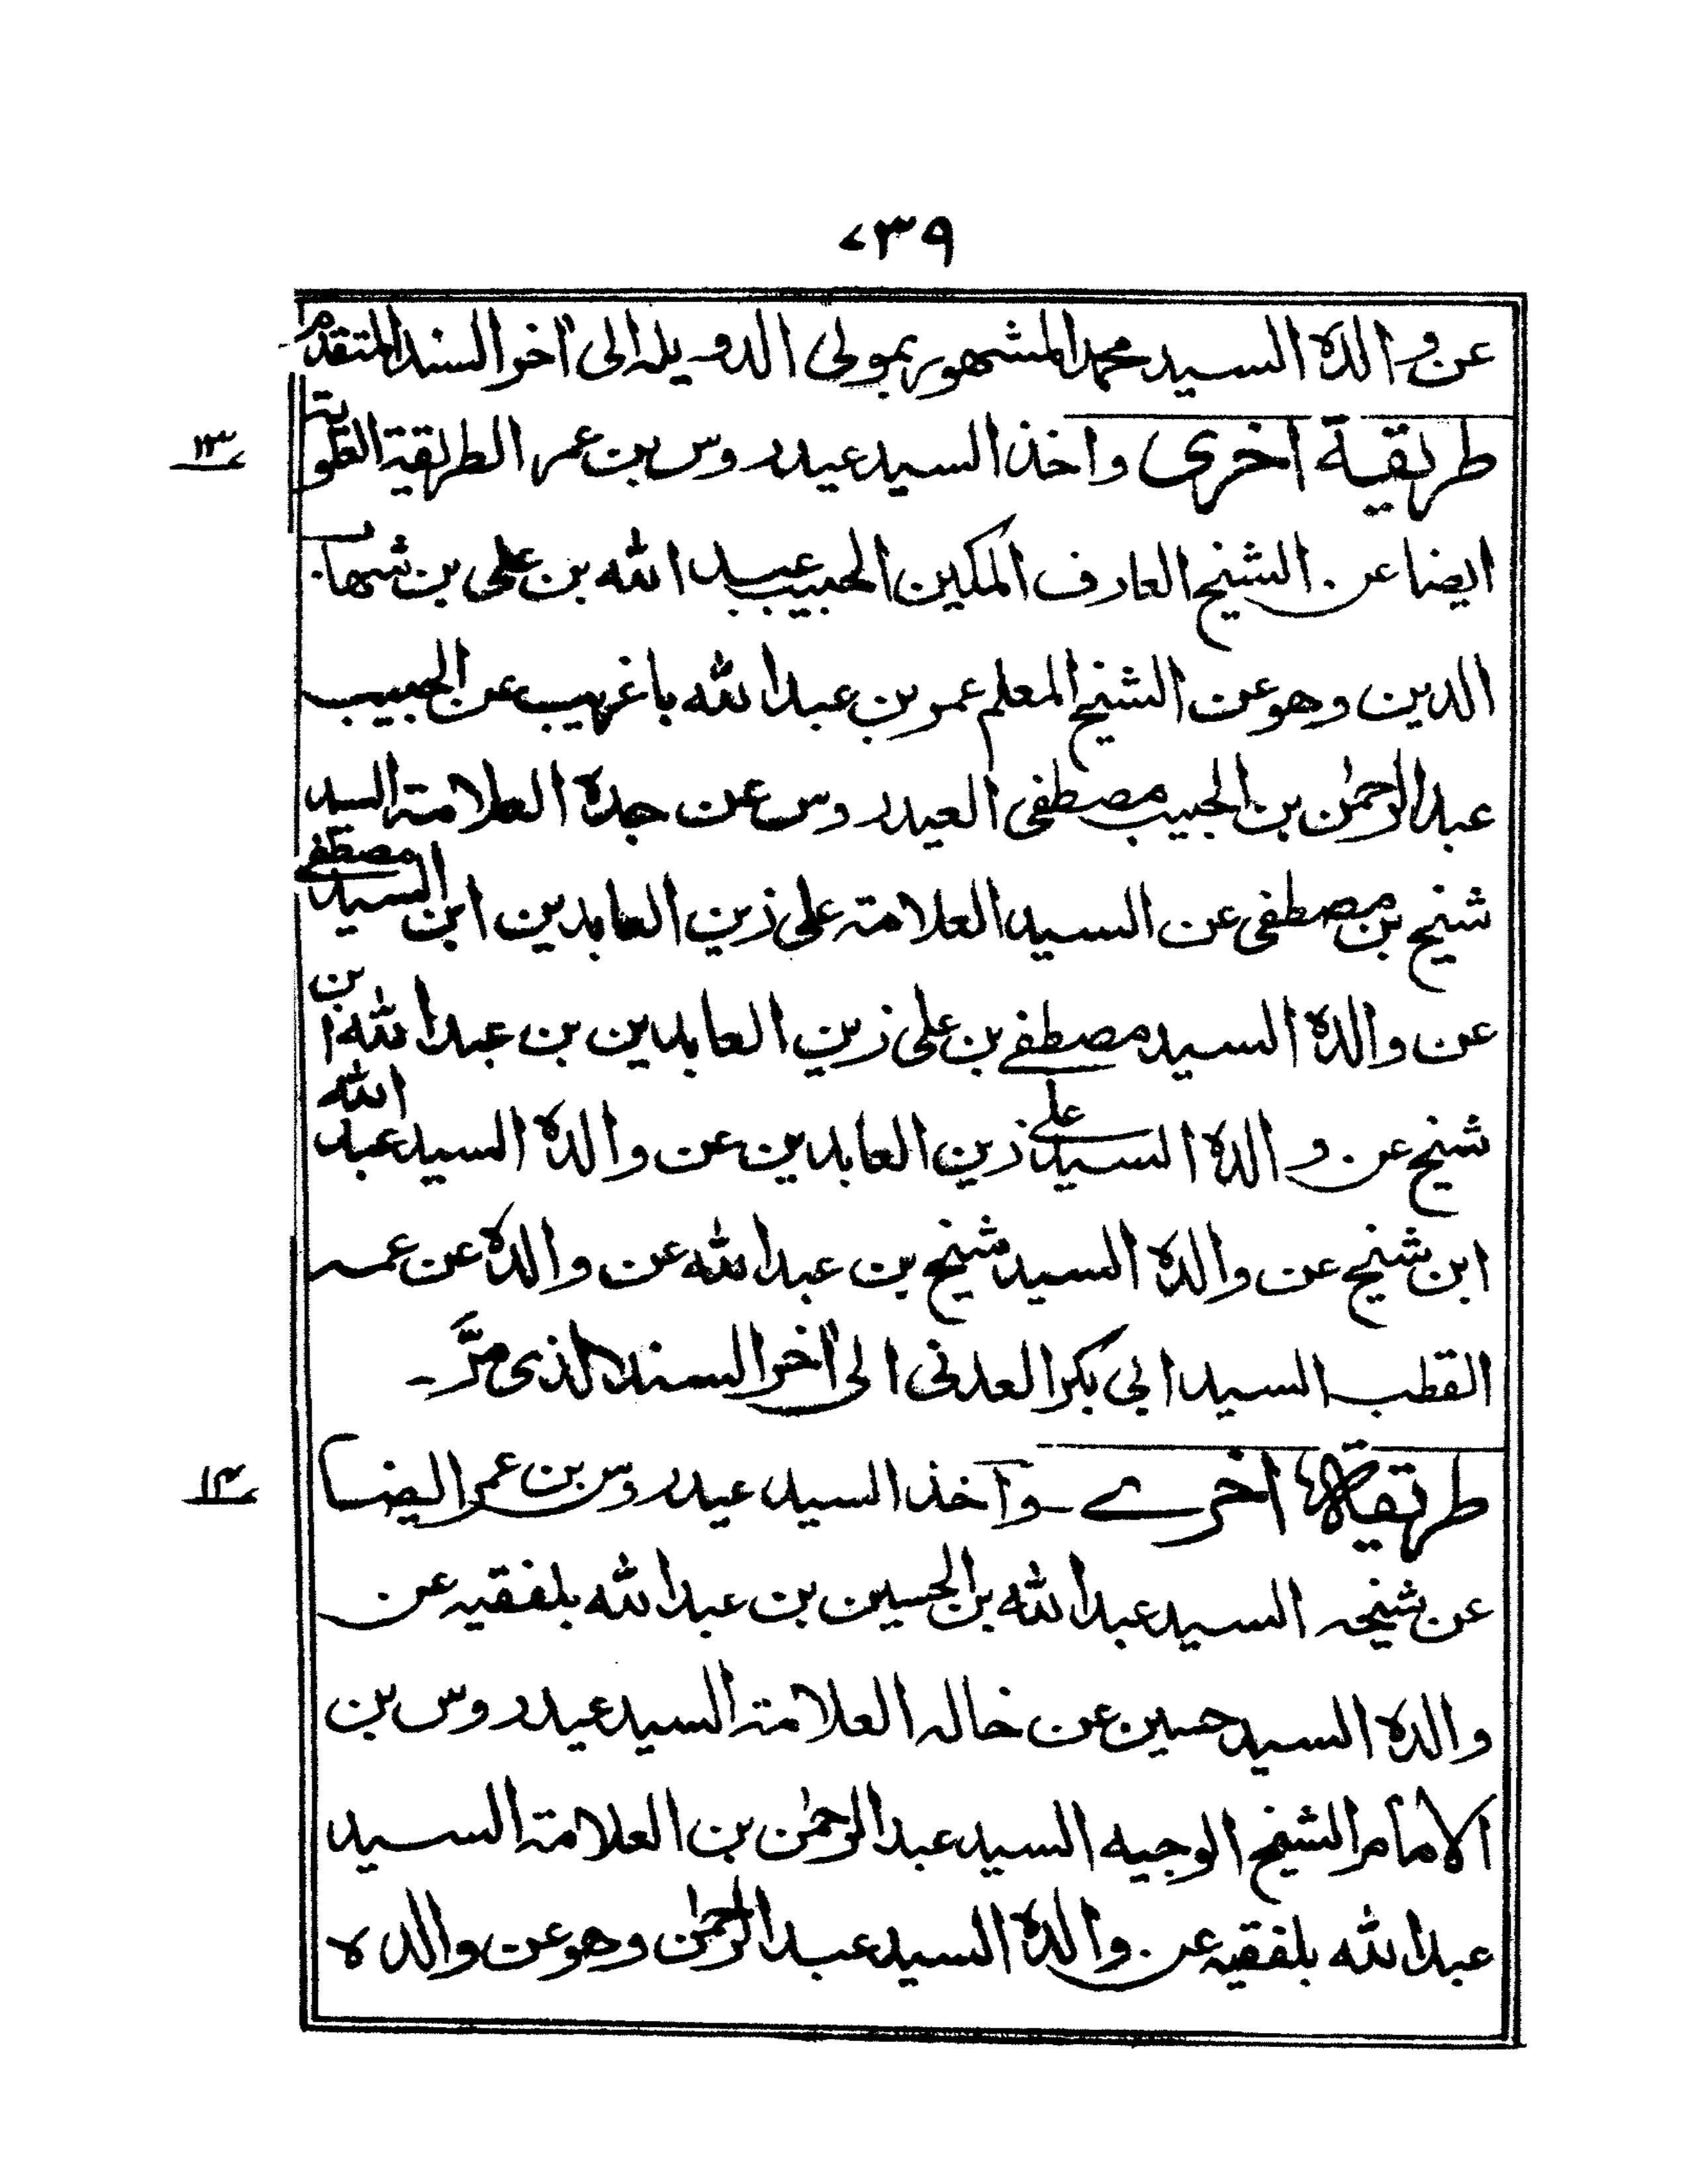 ٧٣٩
عن والده السيد محمد المشهور بمولى الدويله الى آخر السند المتقدم
طريقة اخرى واخذ السيد عيدروس بن عمر الطريقة العلوية
١٣
ايضا عن الشيخ العارف المكين الحبيب عبد الله بن على بن شهاب
الدين وهو عن الشيخ المعلم عمر بن عبد الله باغريب عن الحبيب
عبد الرحمٰن بن الحبيب مصطفى العيدروس عن جده العلامة السيد
شيخ بن مصطفى عن السيد العلامة على زين العابدين ابن السيد مصطفے
عن والده السيد مصطفے بن على زين العابدين بن عبد الله ابن
شيخ عن والده السيد علي زين العابدين عن والده السيد عبد الله
ابن شيخ عن والده السيد شيخ بن عبد الله عن والده عن عمه
القطب السيد ابي بكر العدنى الى آخر السند الذى مرَّ ـ
طريقة اخرے ـ وآخذ السيد عيدروس بن عمر ايضا
١٤
عن شيخه السيد عبد الله بن الحسين بن عبد الله بلفقيه عن
والده السيد حسين عن خاله العلامة السيد عيدروس بن
الامام الشيخ الوجيه السيد عبد الرحمٰن بن العلامة السيد
عبد الله بلفقيه عن والده السيد عبد الرحمٰن وهو عن والده